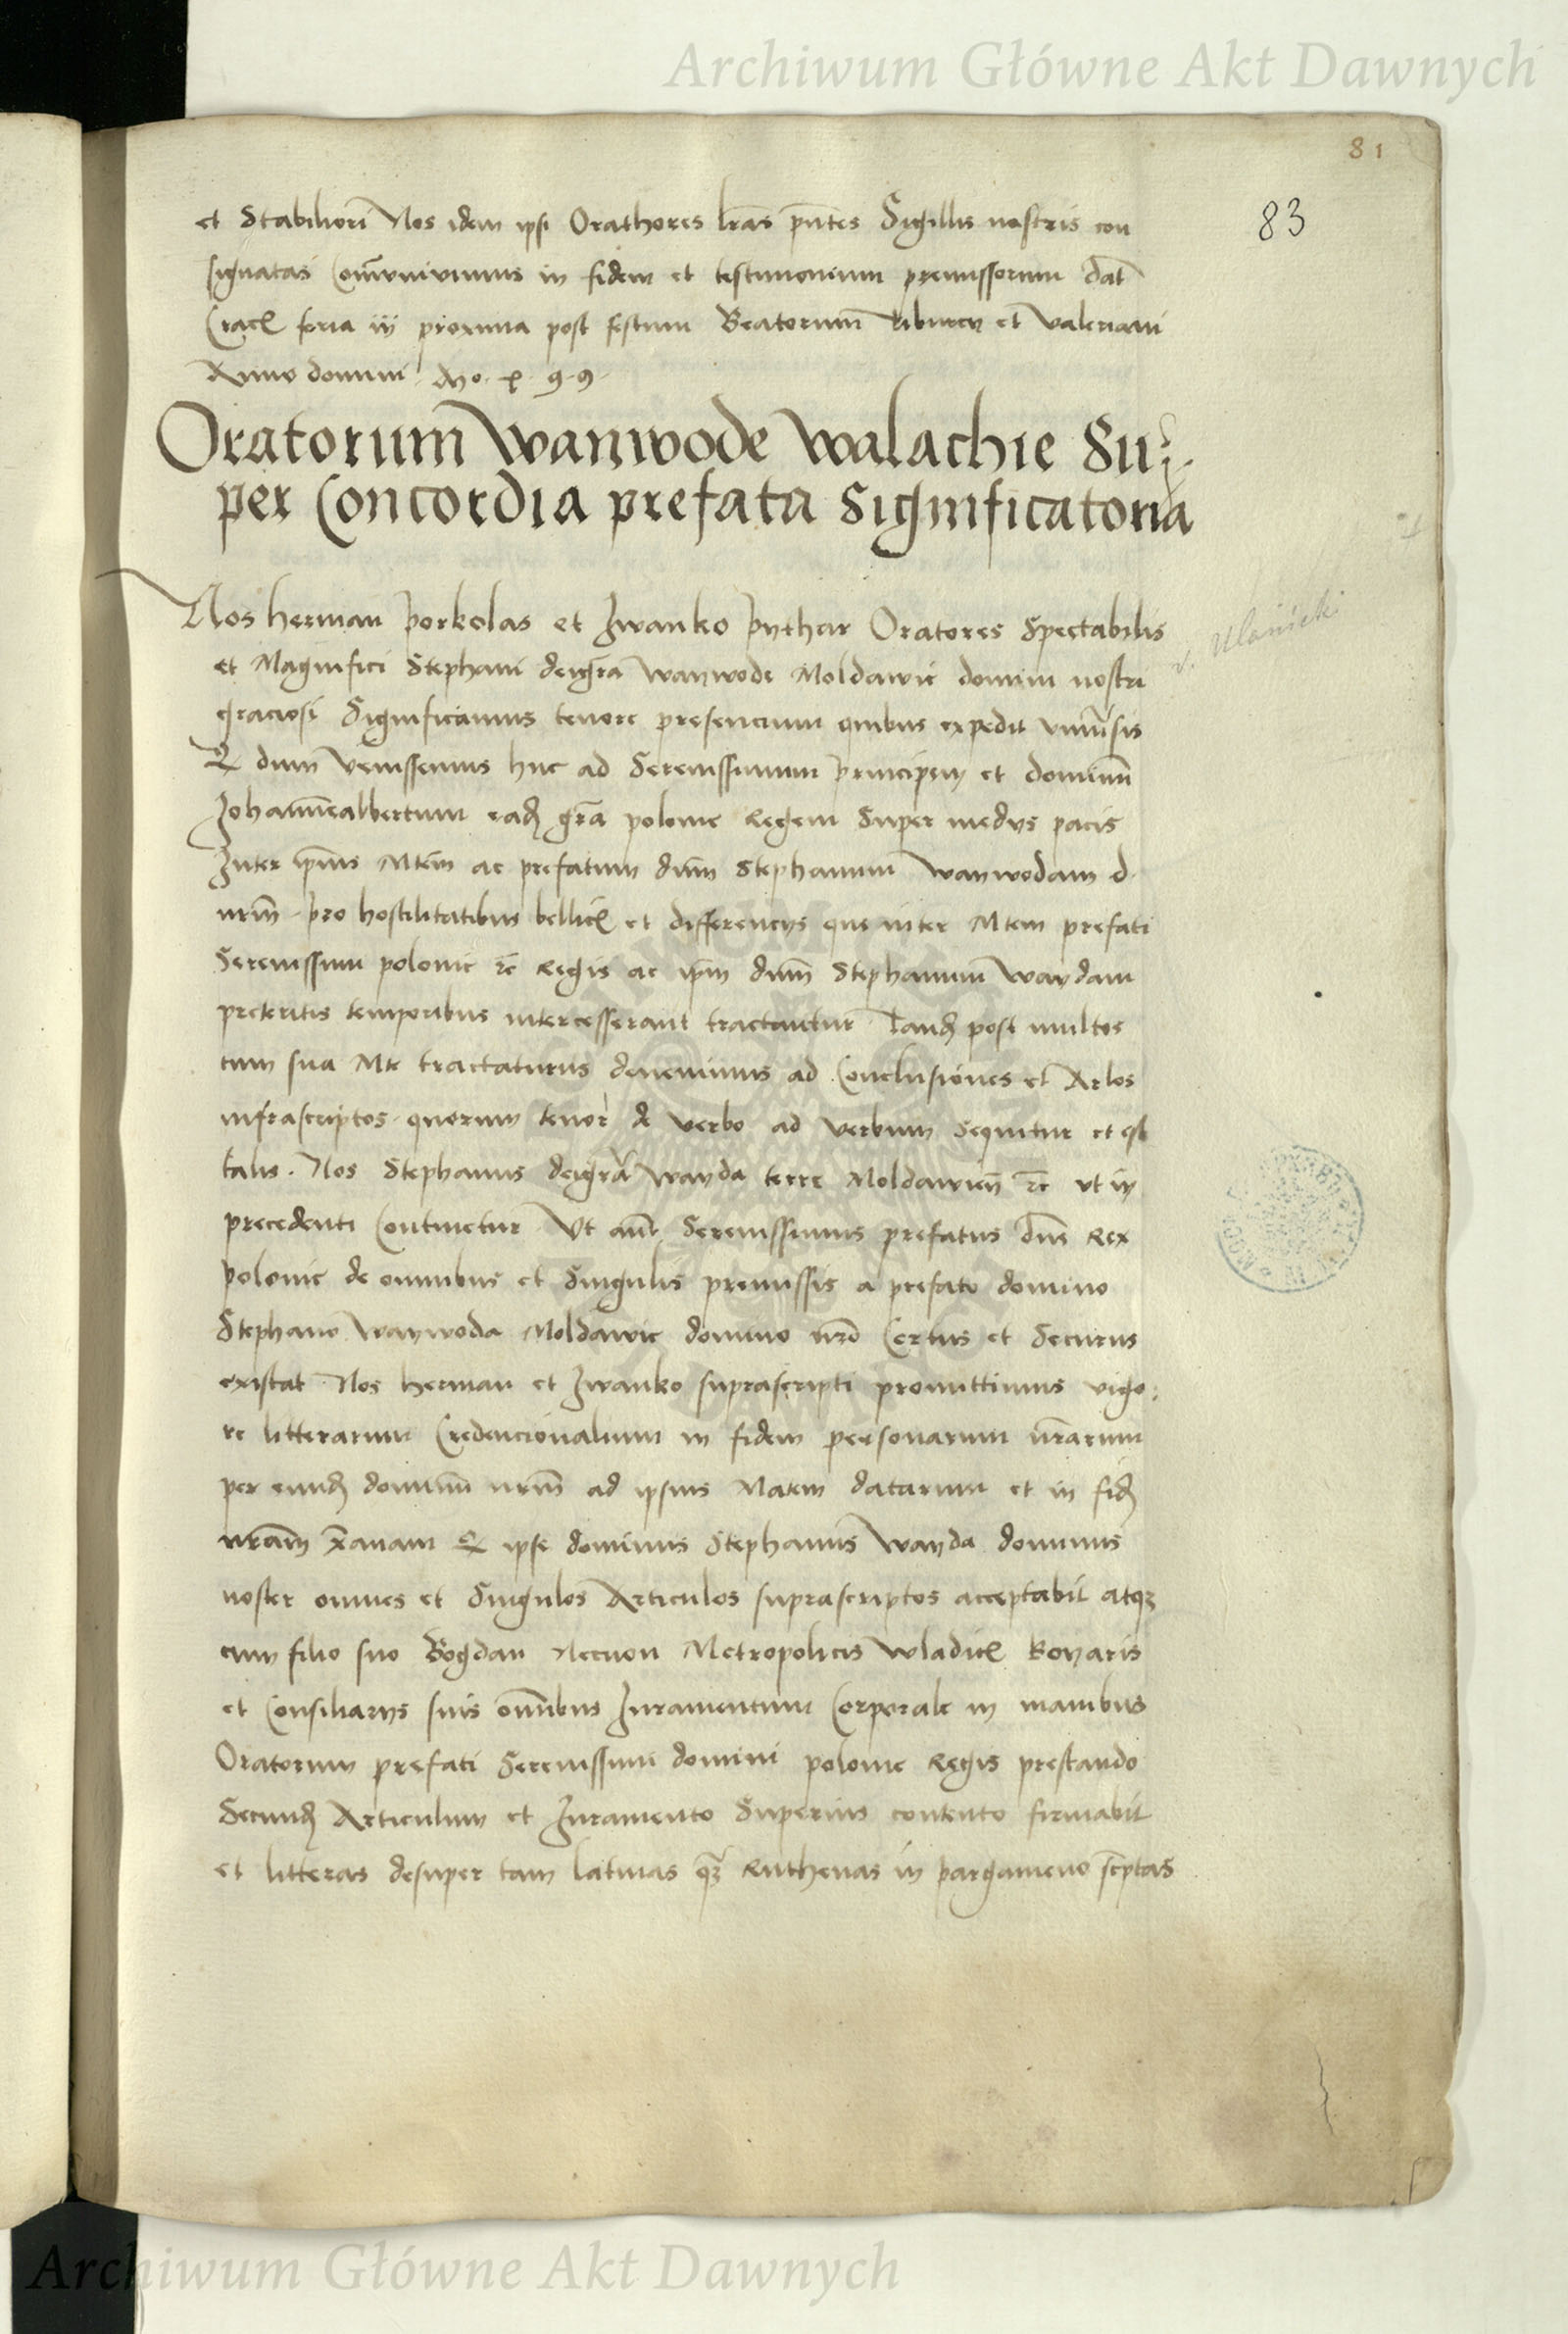 Archiwum Główne Akt Dawnych
81
83
et Stabiliori Nos idem ipsi Orathores lras pntes Sigillis nostris con
signatas Comunivimus in fidem et testimonium premissorum Dat
Crac feria iij proxima post festum Beatorum Tiburcy et Valeriani
Anno domini
Oratorum Waywode Walachie Su
per Concordia prefata Significatoria
Nos herman porkolas et Iwanko pythar Oratores Spectabilis
et Magnifici Stephani deigra Waywode Moldawie domini nostri
graciosi Significamus tenore presencium quibus expedit univsis
Q dum venissemus huc ad Serenissimum principem et dominum
Johannealbertum ead gra polonie Regem Super medys pacis
Inter ipsius Mtem ac prefatum dum Stephanum Waywodam d
nrm pro hostilitatibus bellic et differencys que inter Mtem prefati
Serenissimi polonie rc Regis ac ipm dum Stephanum Waydam
preteritis temporibus intercesserant tractantur Tand post multos
cum sua Mte tractaturus devenimus ad Conclusiones et Arlos
infrascriptos quorum tenor de verbo ad verbum sequitur et est
talis. Nos Stephanus deigra Wayda terre Moldawien rc ut in
precedenti Continetur Ut aut Serenissimus prefatus dns Rex
polonie de omnibus et Singulis premissis a prefato domino
Stephano Waywoda Moldawie domino nro Certus et Securus
existat Nos herman et Iwanko suprascripti promittimus vigo
re litterarum Credencionalium in fidem personarum nrarum
per eund dominum nrm ad ipsius Matem datarum et in fid
nram xanam Q ipse dominus Stephanus Wayda dominus
noster omnes et Singulos Articulos suprascriptos acceptabit atqz
cum filio suo Bogdan Necnon Metropolicis Wladic Boyaris
et Consiliarys suis omnibus Iuramentum Corporale in manibus
Oratorum prefati Serenissimi domini polonie Regis prestando
Secund Articulum et Iuramento Superius contento firmabit
et litteras desuper tam latinas qz Ruthenas in pargameno scptas
Archiwum Główne Akt Dawnych